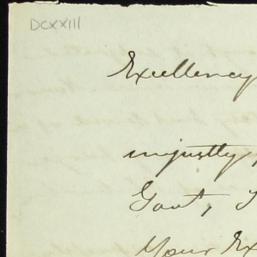 DCXXIII
Excellency
unjustly
Govt,
Your Ex